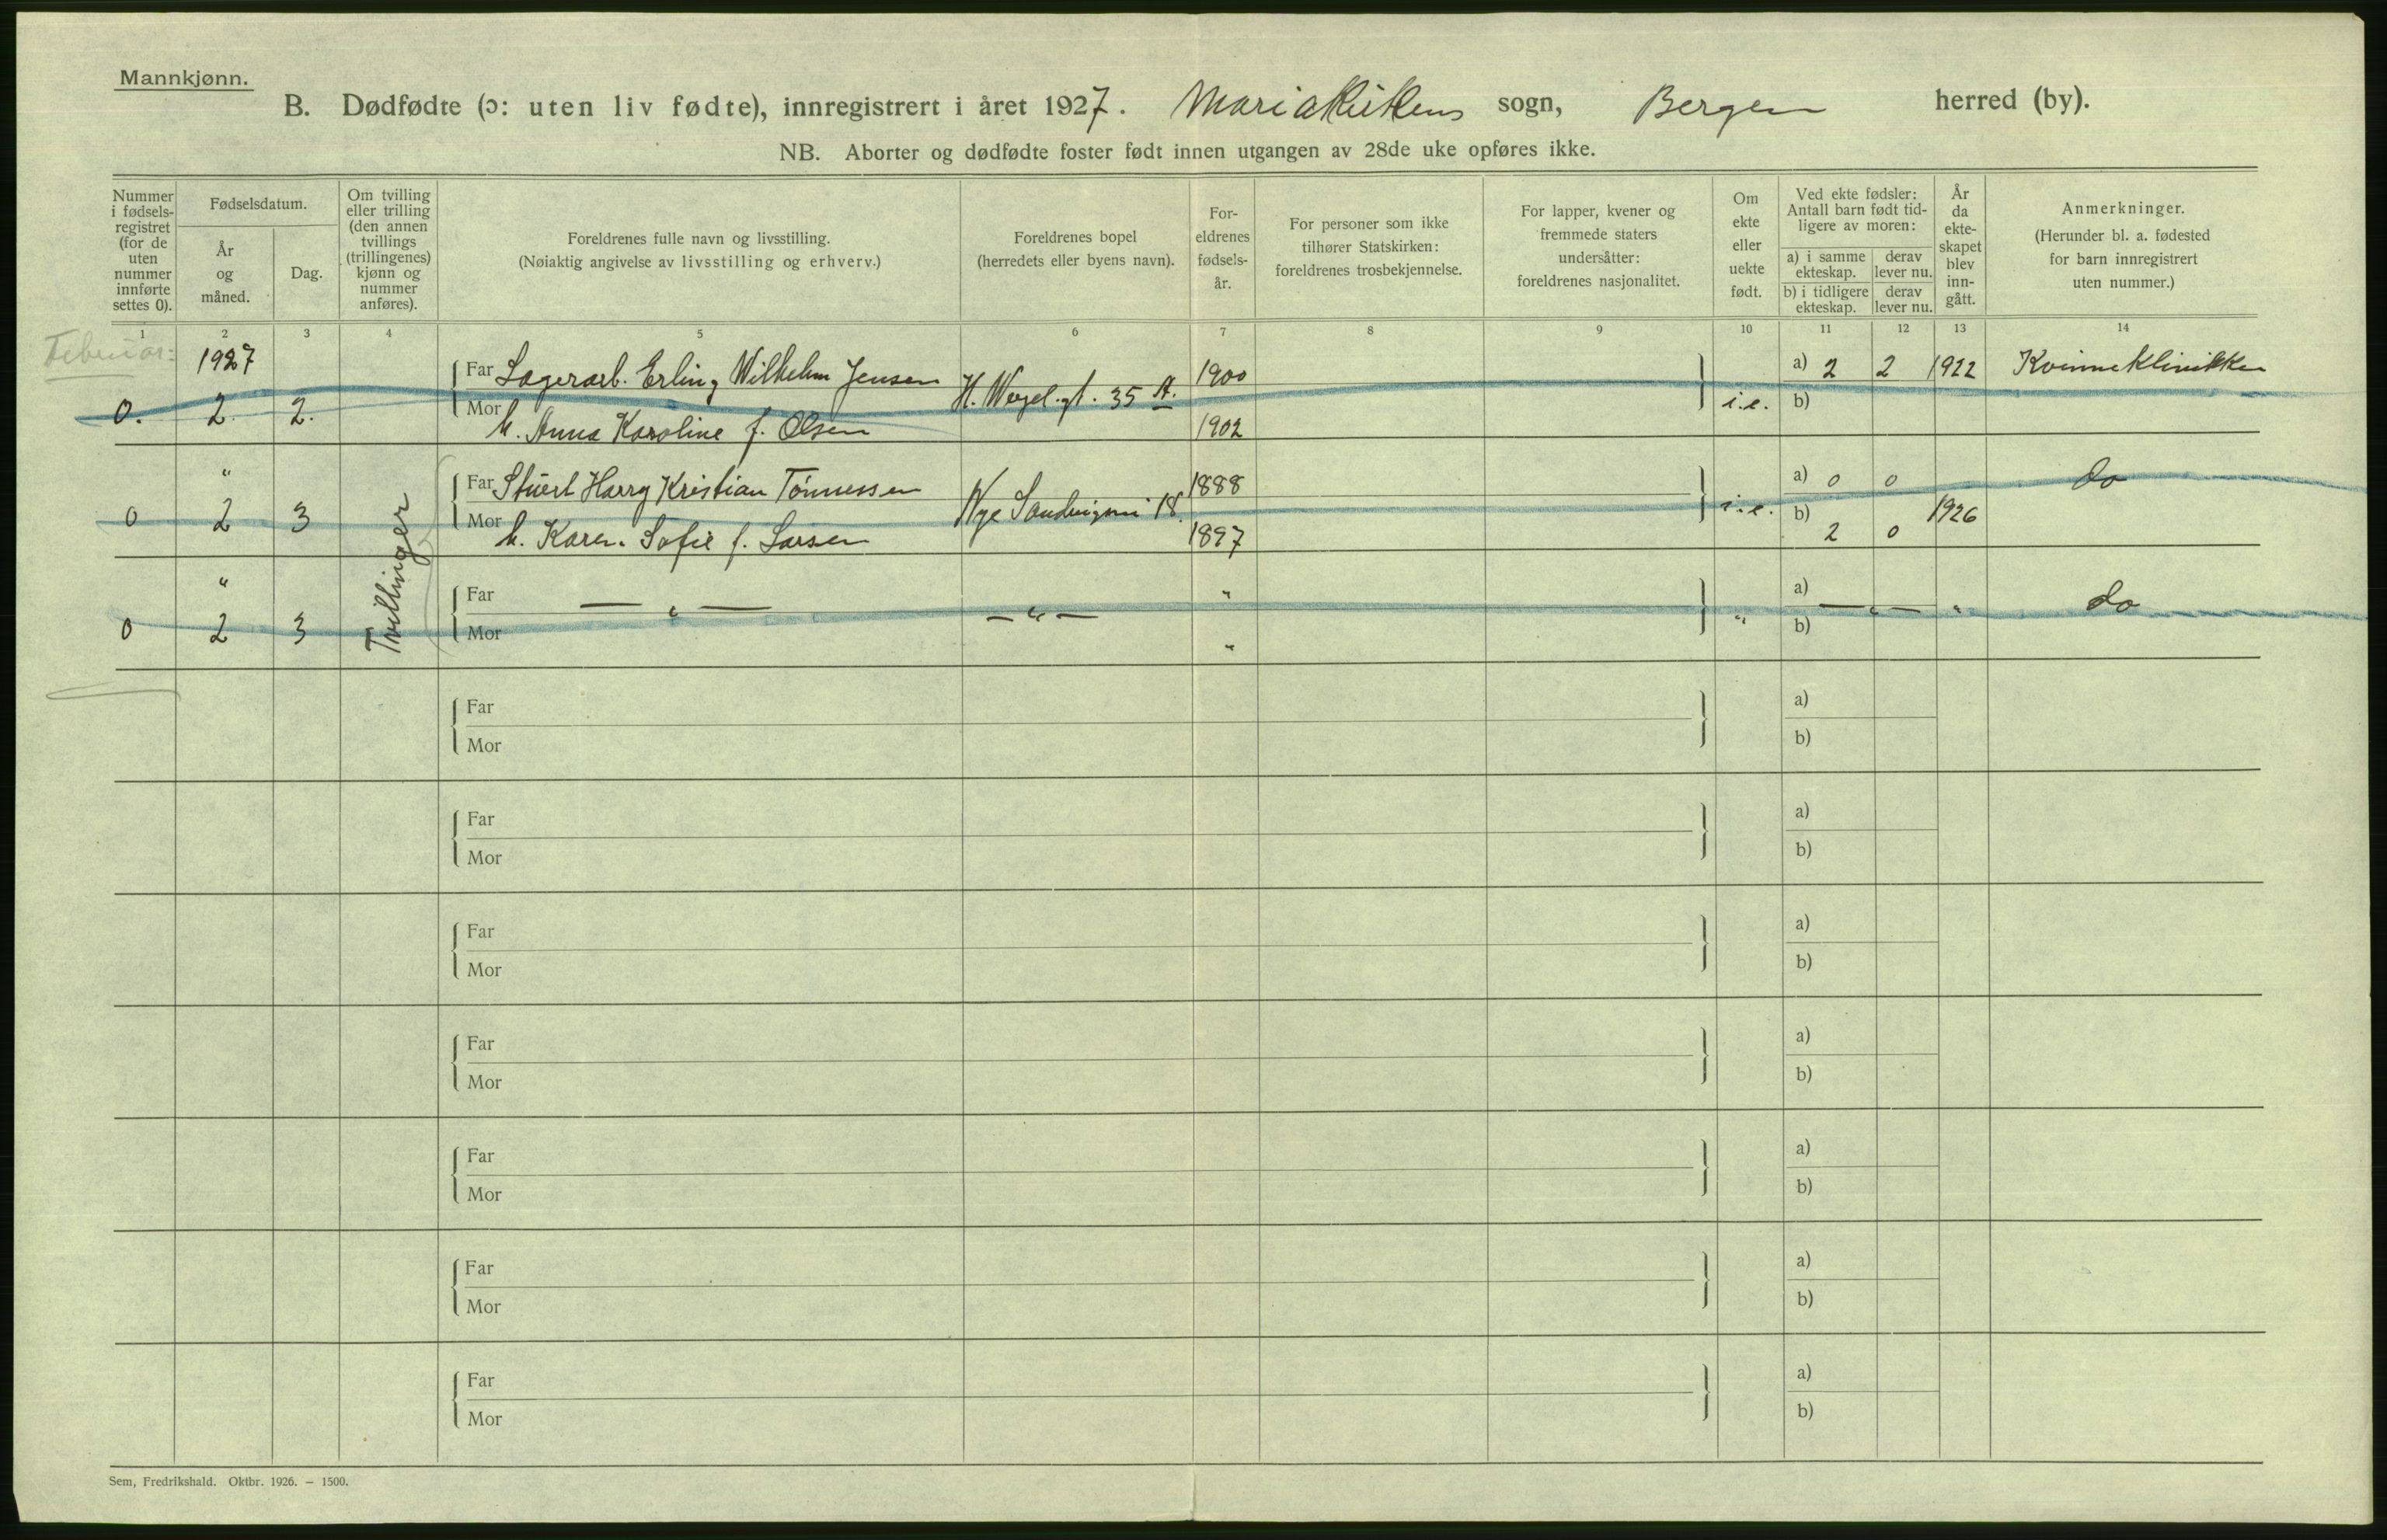 Mannkjønn.
B. Dødfødte (ɔ: uten liv fødte), innregistrert i året 1927. Mariakirkens sogn, Bergen herred (by).
NB. Aborter og dødfødte foster født innen utgangen av 28de uke opføres ikke.
Nummer i fødsels-registret (for de uten nummer innførte settes 0).
Fødselsdatum.
År og måned.
Dag.
Om tvilling eller trilling (den annen tvillings (trillingenes) kjønn og nummer anføres).
Foreldrenes fulle navn og livsstilling.
(Nøiaktig angivelse av livsstilling og erhverv.)
Foreldrenes bopel
(herredets eller byens navn).
For-eldrenes fødsels-år.
For personer som ikke tilhører Statskirken: foreldrenes trosbekjennelse.
For lapper, kvener og fremmede staters undersåtter: foreldrenes nasjonalitet.
Om ekte eller uekte født.
Ved ekte fødsler: Antall barn født tid-ligere av moren:
a) i samme ekteskap.
derav lever nu.
b) i tidligere ekteskap.
derav lever nu.
År da ekte-skapet blev inn-gått.
Anmerkninger.
(Herunder bl. a. fødested for barn innregistrert uten nummer.)
1 2 3 4 5 6 7 8 9 10 11 12 13 14
Februar:
1927 Far Lagerarb. Erling Wilhelm Jensen 1900 a) 2 2 1922 Kvinneklinikken
0. 2. 2. H. Wergel.gt. 35 A. i.e. b)
Mor h. Anna Karoline f. Olsen 1902
" Far Stuert Harry Kristian Tönnessen 1888 a) 0 0 do
0 2 3 Nye Sandvigsvei 18. i.e. b) 2 0 1926
Mor h. Karen Sofie f. Larsen 1897
Tvillinger
" Far — " — — " — " a) — " — " do
0 2 3 Mor " " b)
Far a)
Mor b)
Far a)
Mor b)
Far a)
Mor b)
Far a)
Mor b)
Far a)
Mor b)
Far a)
Mor b)
Far a)
Mor b)
Sem, Fredrikshald. Oktbr. 1926. — 1500.